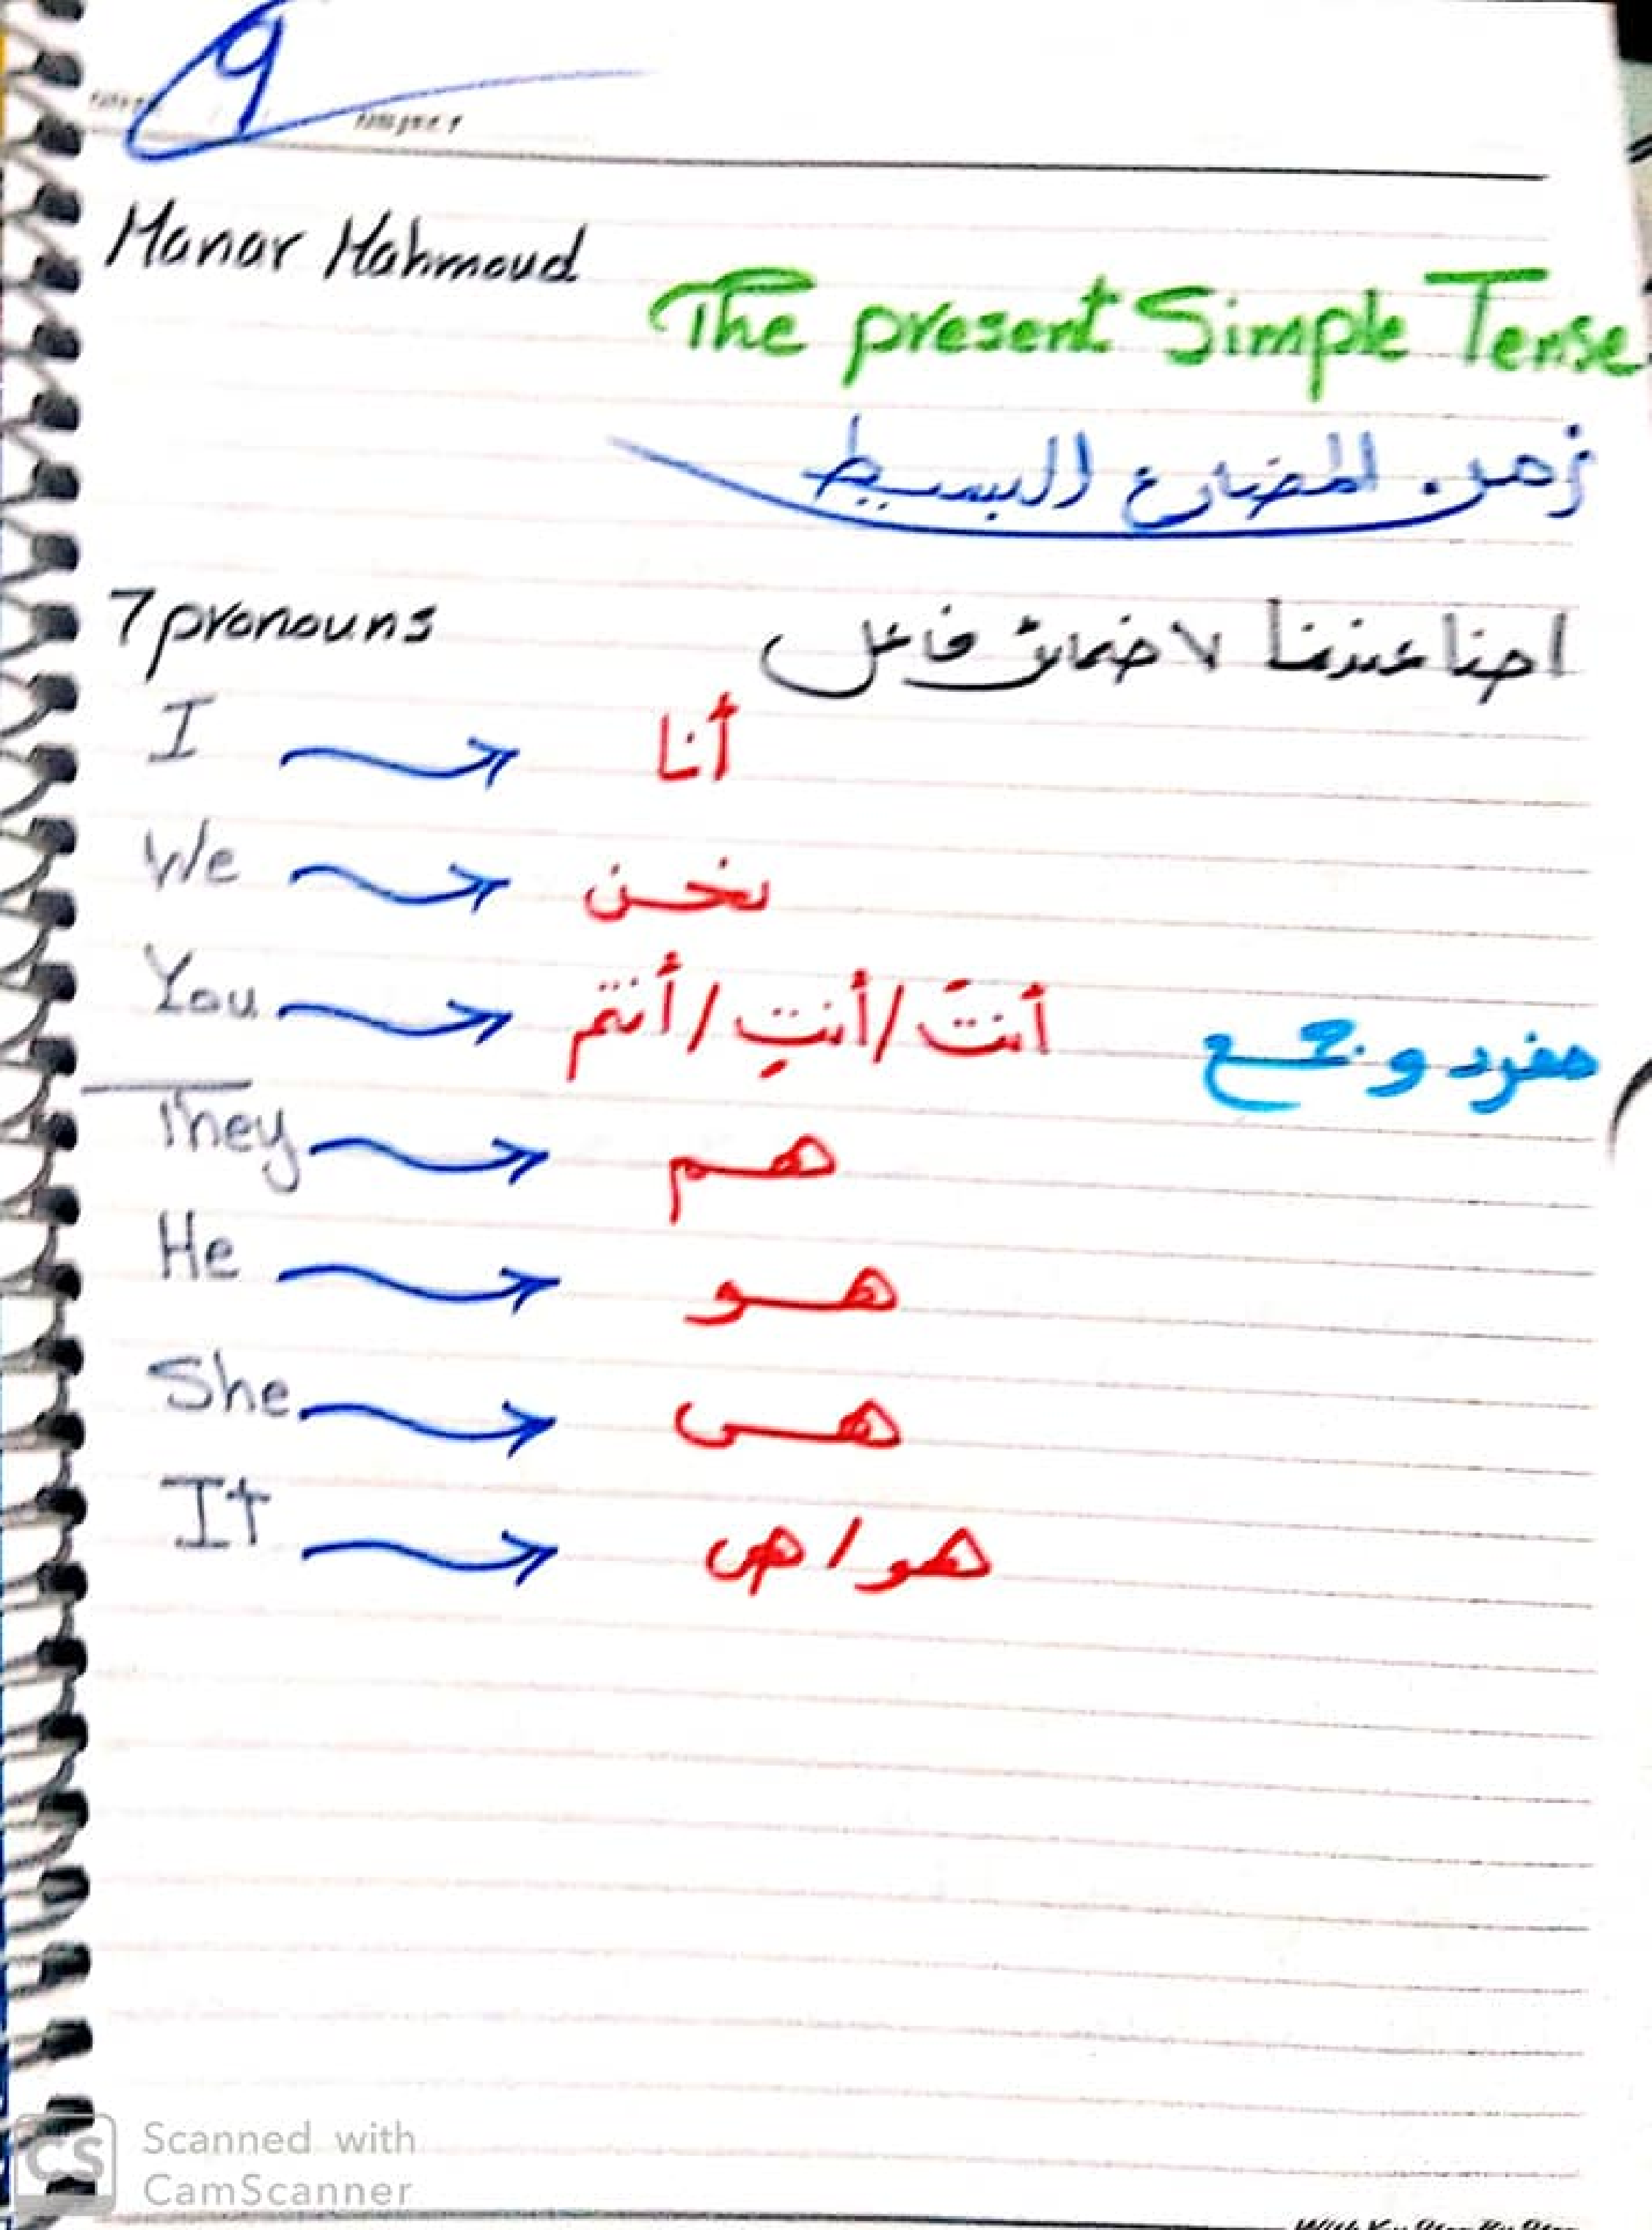 9
Manar Mahmoud
The present Simple Tense
زمن المضارع البسيط
7 pronouns احنا عندنا ٧ ضمائر فاعل
I أنا
We نحن
You أنتَ / أنتِ / أنتم مفرد و جمع
They هم
He هو
She هى
It هو / هى
Scanned with
CamScanner